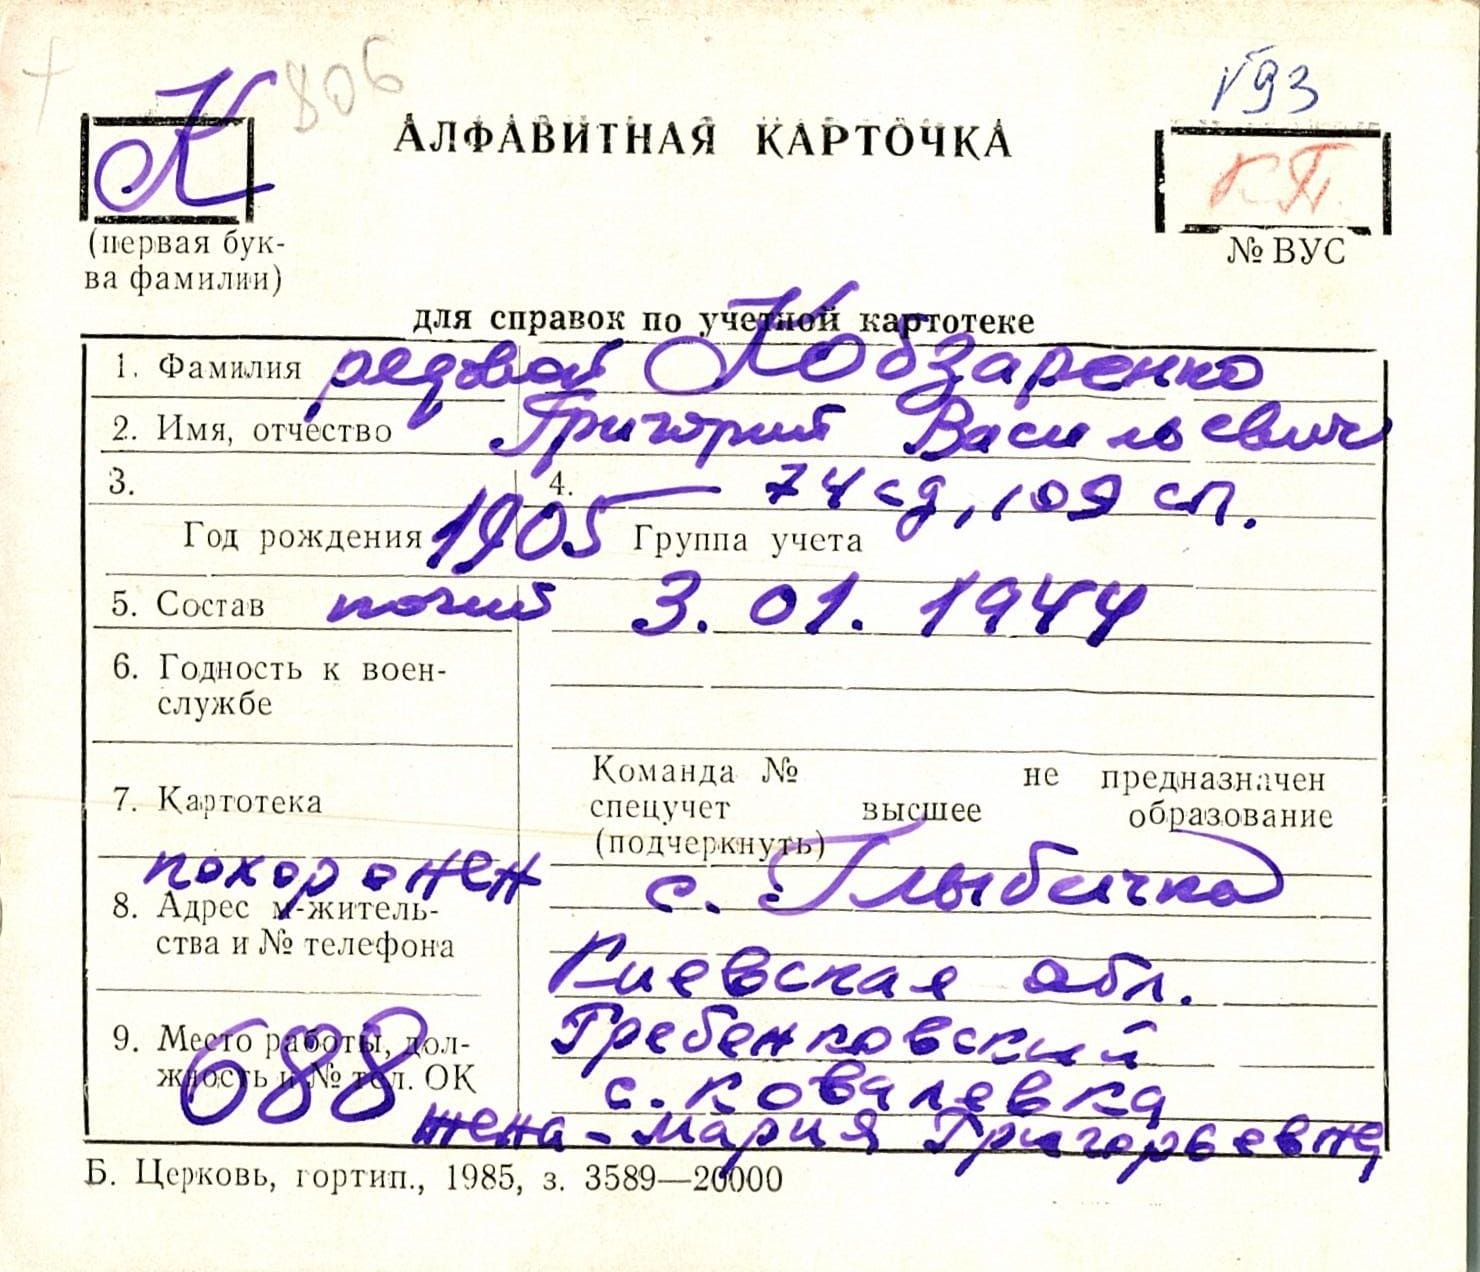 К 806
√93
АЛФАВИТНАЯ КАРТОЧКА
КП.
(первая бук-
ва фамилии)
№ ВУС
для справок по учетной картотеке
1. Фамилия рядовой Кобзаренко
2. Имя, отчество Григорий Васильевич
3. 4. 74 сд, 109 сп.
Год рождения 1905 Группа учета
5. Состав погиб 3.01.1944
6. Годность к воен-
службе
Команда № не предназначен
7. Картотека спецучет высшее образование
(подчеркнуть)
похоронен с. Глыбочка
8. Адрес м-житель-
ства и № телефона
Киевская обл.
9. Место работы, дол- Гребенковский
жность и № тел. ОК с. Ковалевка
688
жена - Мария Григорьевна
Б. Церковь, гортип., 1985, з. 3589—20000